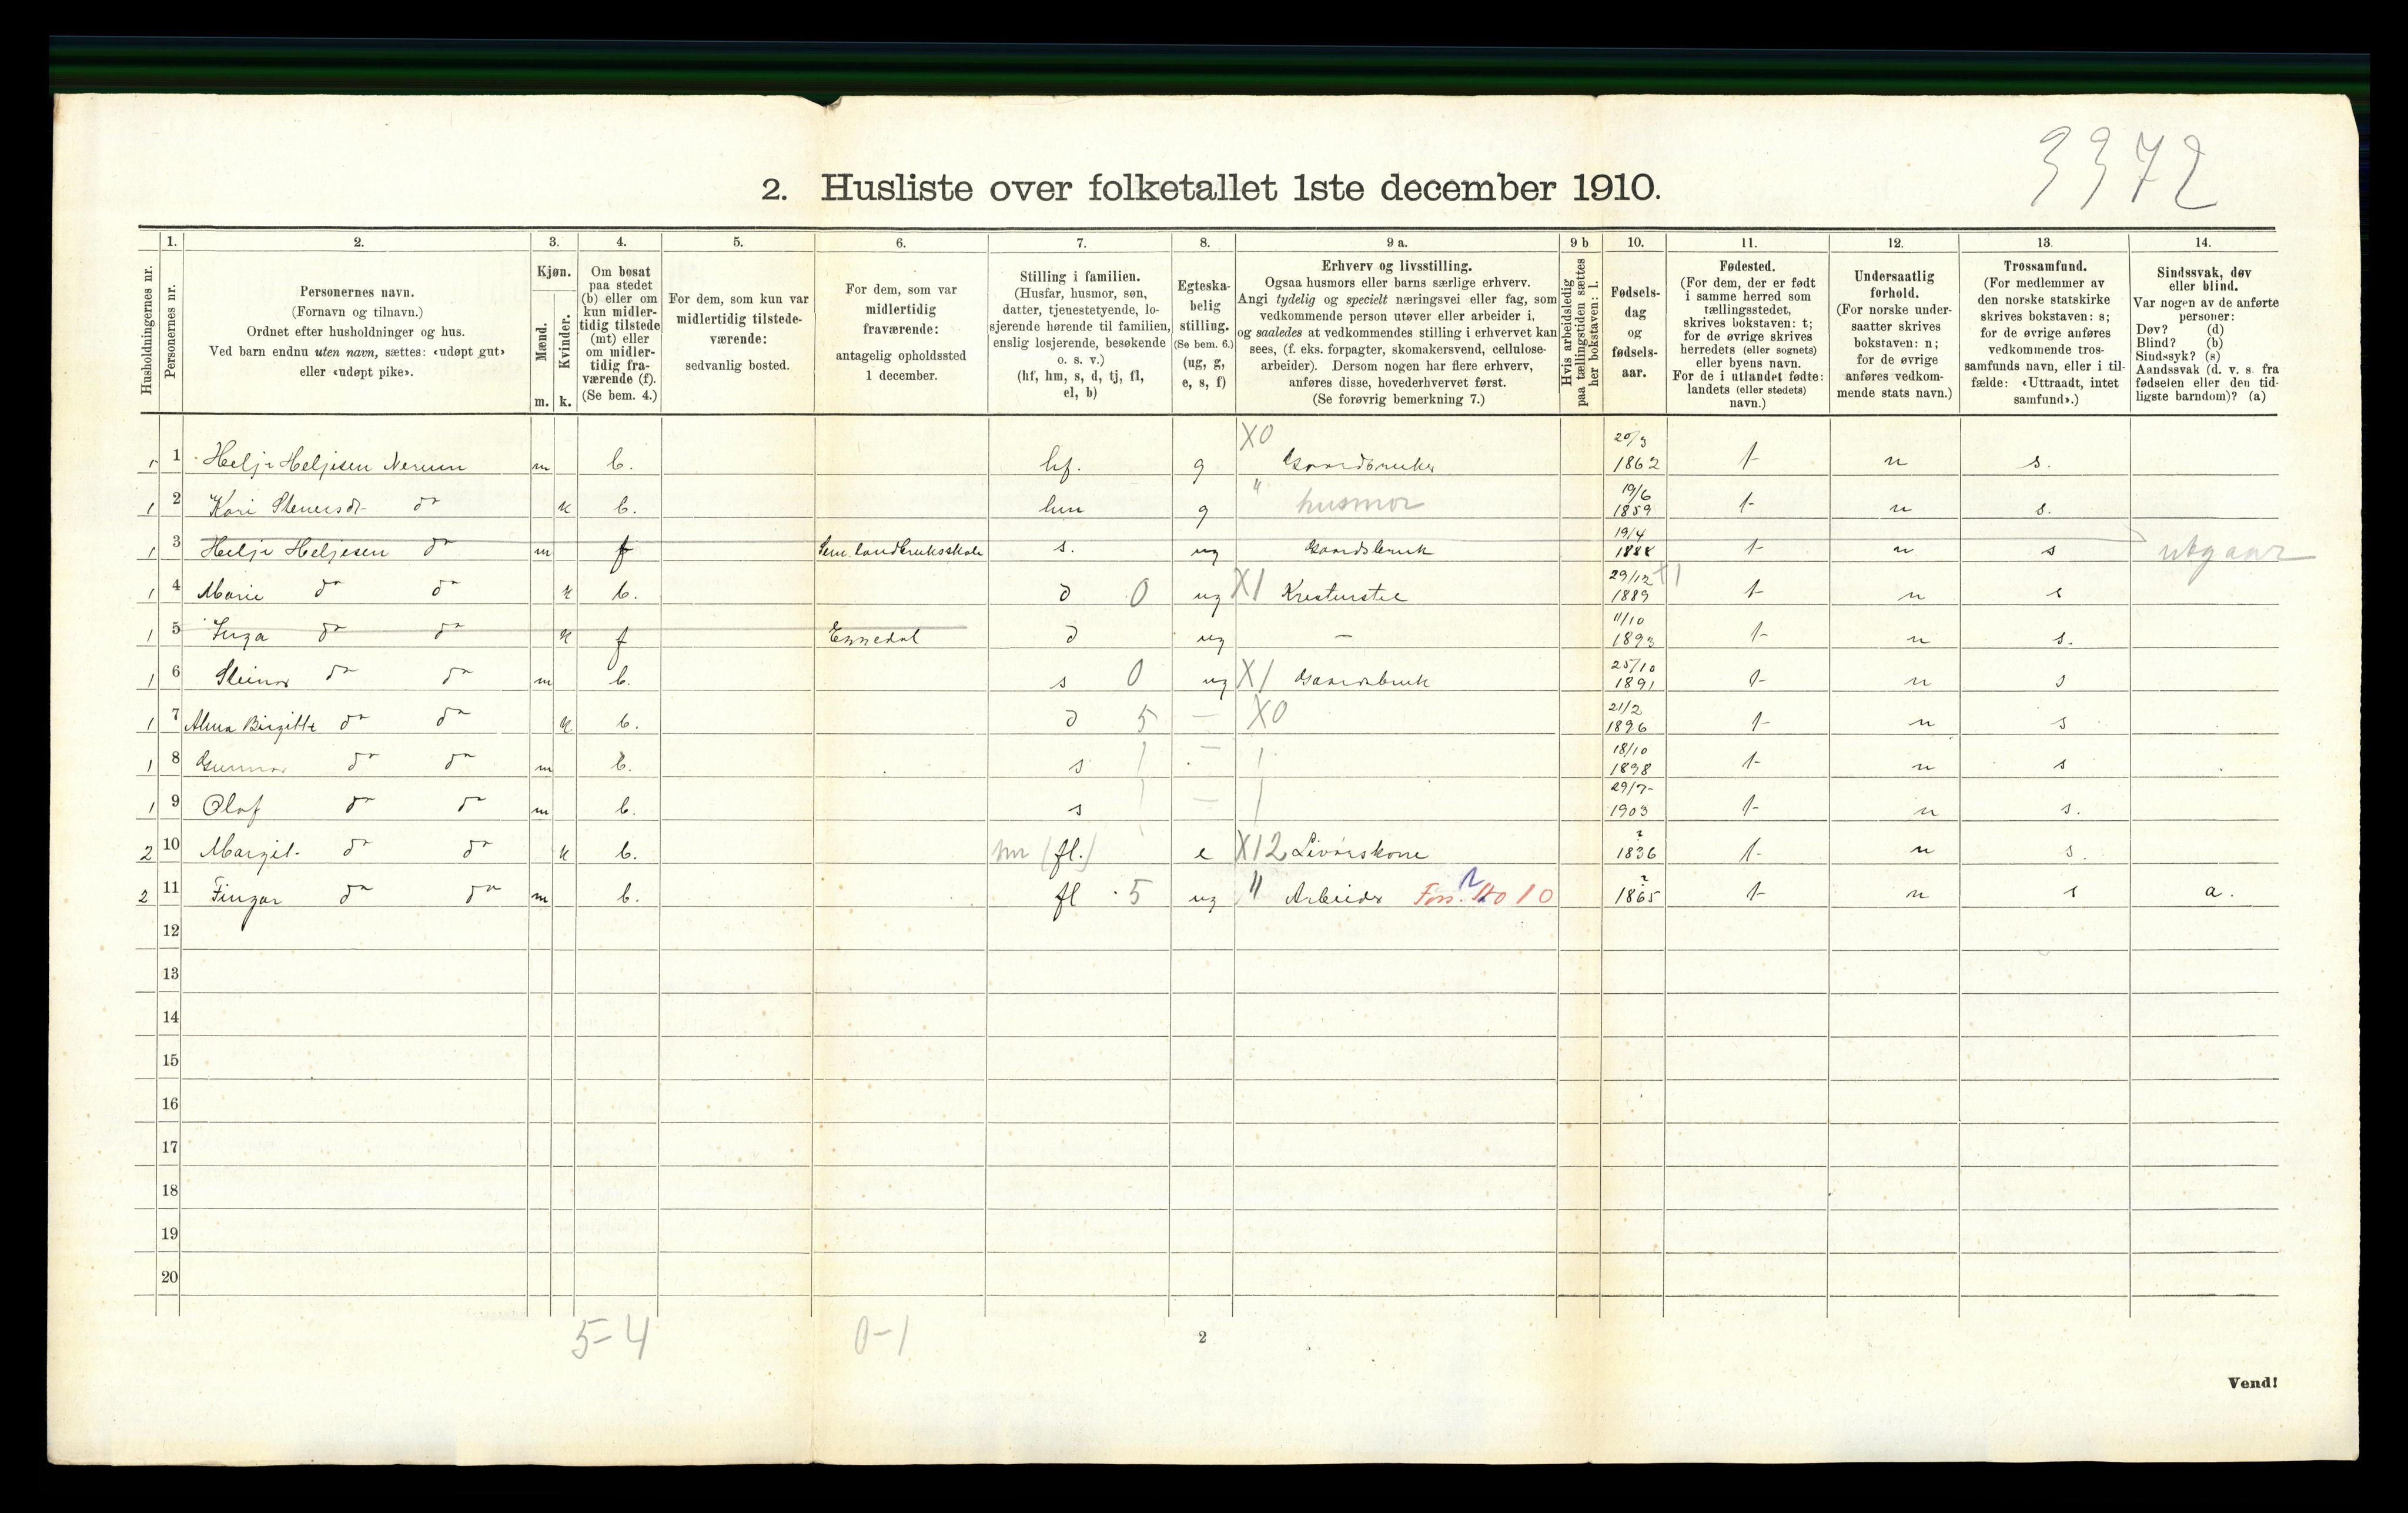 3372
2. Husliste over folketallet 1ste december 1910.
1. 2. 3. 4. 5. 6. 7. 8. 9 a. 9 b 10. 11. 12. 13. 14.
Husholdningernes nr.
Personernes nr.
Personernes navn.
(Fornavn og tilnavn.)
Ordnet efter husholdninger og hus.
Ved barn endnu uten navn, sættes: «udøpt gut»
eller «udøpt pike».
Kjøn.
Mænd.
Kvinder.
m. k.
Om bosat
paa stedet
(b) eller om
kun midler-
tidig tilstede
(mt) eller
om midler-
tidig fra-
værende (f).
(Se bem. 4.)
For dem, som kun var
midlertidig tilstede-
værende:
sedvanlig bosted.
For dem, som var
midlertidig
fraværende:
antagelig opholdssted
1 december.
Stilling i familien.
(Husfar, husmor, søn,
datter, tjenestetyende, lo-
sjerende hørende til familien,
enslig losjerende, besøkende
o. s. v.)
(hf, hm, s, d, tj, fl,
el, b)
Egteska-
belig
stilling.
(Se bem. 6.)
(ug, g,
e, s, f)
Erhverv og livsstilling.
Ogsaa husmors eller barns særlige erhverv.
Angi tydelig og specielt næringsvei eller fag, som
vedkommende person utøver eller arbeider i,
og saaledes at vedkommendes stilling i erhvervet kan
sees, (f. eks. forpagter, skomakersvend, cellulose-
arbeider). Dersom nogen har flere erhverv,
anføres disse, hovederhvervet først.
(Se forøvrig bemerkning 7.)
Hvis arbeidsledig
paa tællingstiden sættes
her bokstaven: l.
Fødsels-
dag
og
fødsels-
aar.
Fødested.
(For dem, der er født
i samme herred som
tællingsstedet,
skrives bokstaven: t;
for de øvrige skrives
herredets (eller sognets)
eller byens navn.
For de i utlandet fødte:
landets (eller stedets)
navn.)
Undersaatlig
forhold.
(For norske under-
saatter skrives
bokstaven: n;
for de øvrige
anføres vedkom-
mende stats navn.)
Trossamfund.
(For medlemmer av
den norske statskirke
skrives bokstaven: s;
for de øvrige anføres
vedkommende tros-
samfunds navn, eller i til-
fælde: «Uttraadt, intet
samfund».)
Sindssvak, døv
eller blind.
Var nogen av de anførte
personer:
Døv? (d)
Blind? (b)
Sindssyk? (s)
Aandssvak (d. v. s. fra
fødselen eller den tid-
ligste barndom)? (a)
1 1 Helje Heljesen m b. hf. g X0 Gaardbruker 20/3 1862 t n s.
1 2 Kari Stenersdr do k b. hm g " husmor 19/6 1859 t n s.
1 3 Helje Heljesen do m f landbruksskole s. ug Gaardsbruk 19/4 1888 t n s utgaar
1 4 Marie do do k b. d 0 ug X1 29/12 1889 t n s
1 5 Inga do do k f d ug — 11/10 1893 t n s.
1 6 Steinar do do m b. s 0 ug X1 Gaardsbruk 25/10 1891 t n s
1 7 Alma Birgitte do do k b. d 5 — X0 21/2 1896 t n s
1 8 Gunnar do do m b. s — 18/10 1898 t n s
1 9 Olaf do do m b. s — 29/7 1903 t n s.
2 10 Margit do do k b. hm (fl.) e X12 Livørskone ? 1836 t n s.
2 11 do do m b. fl 5 ug " Arbeider ? 1865 t n s a.
12
13
14
15
16
17
18
19
20
5-4 0-1 2
Vend!